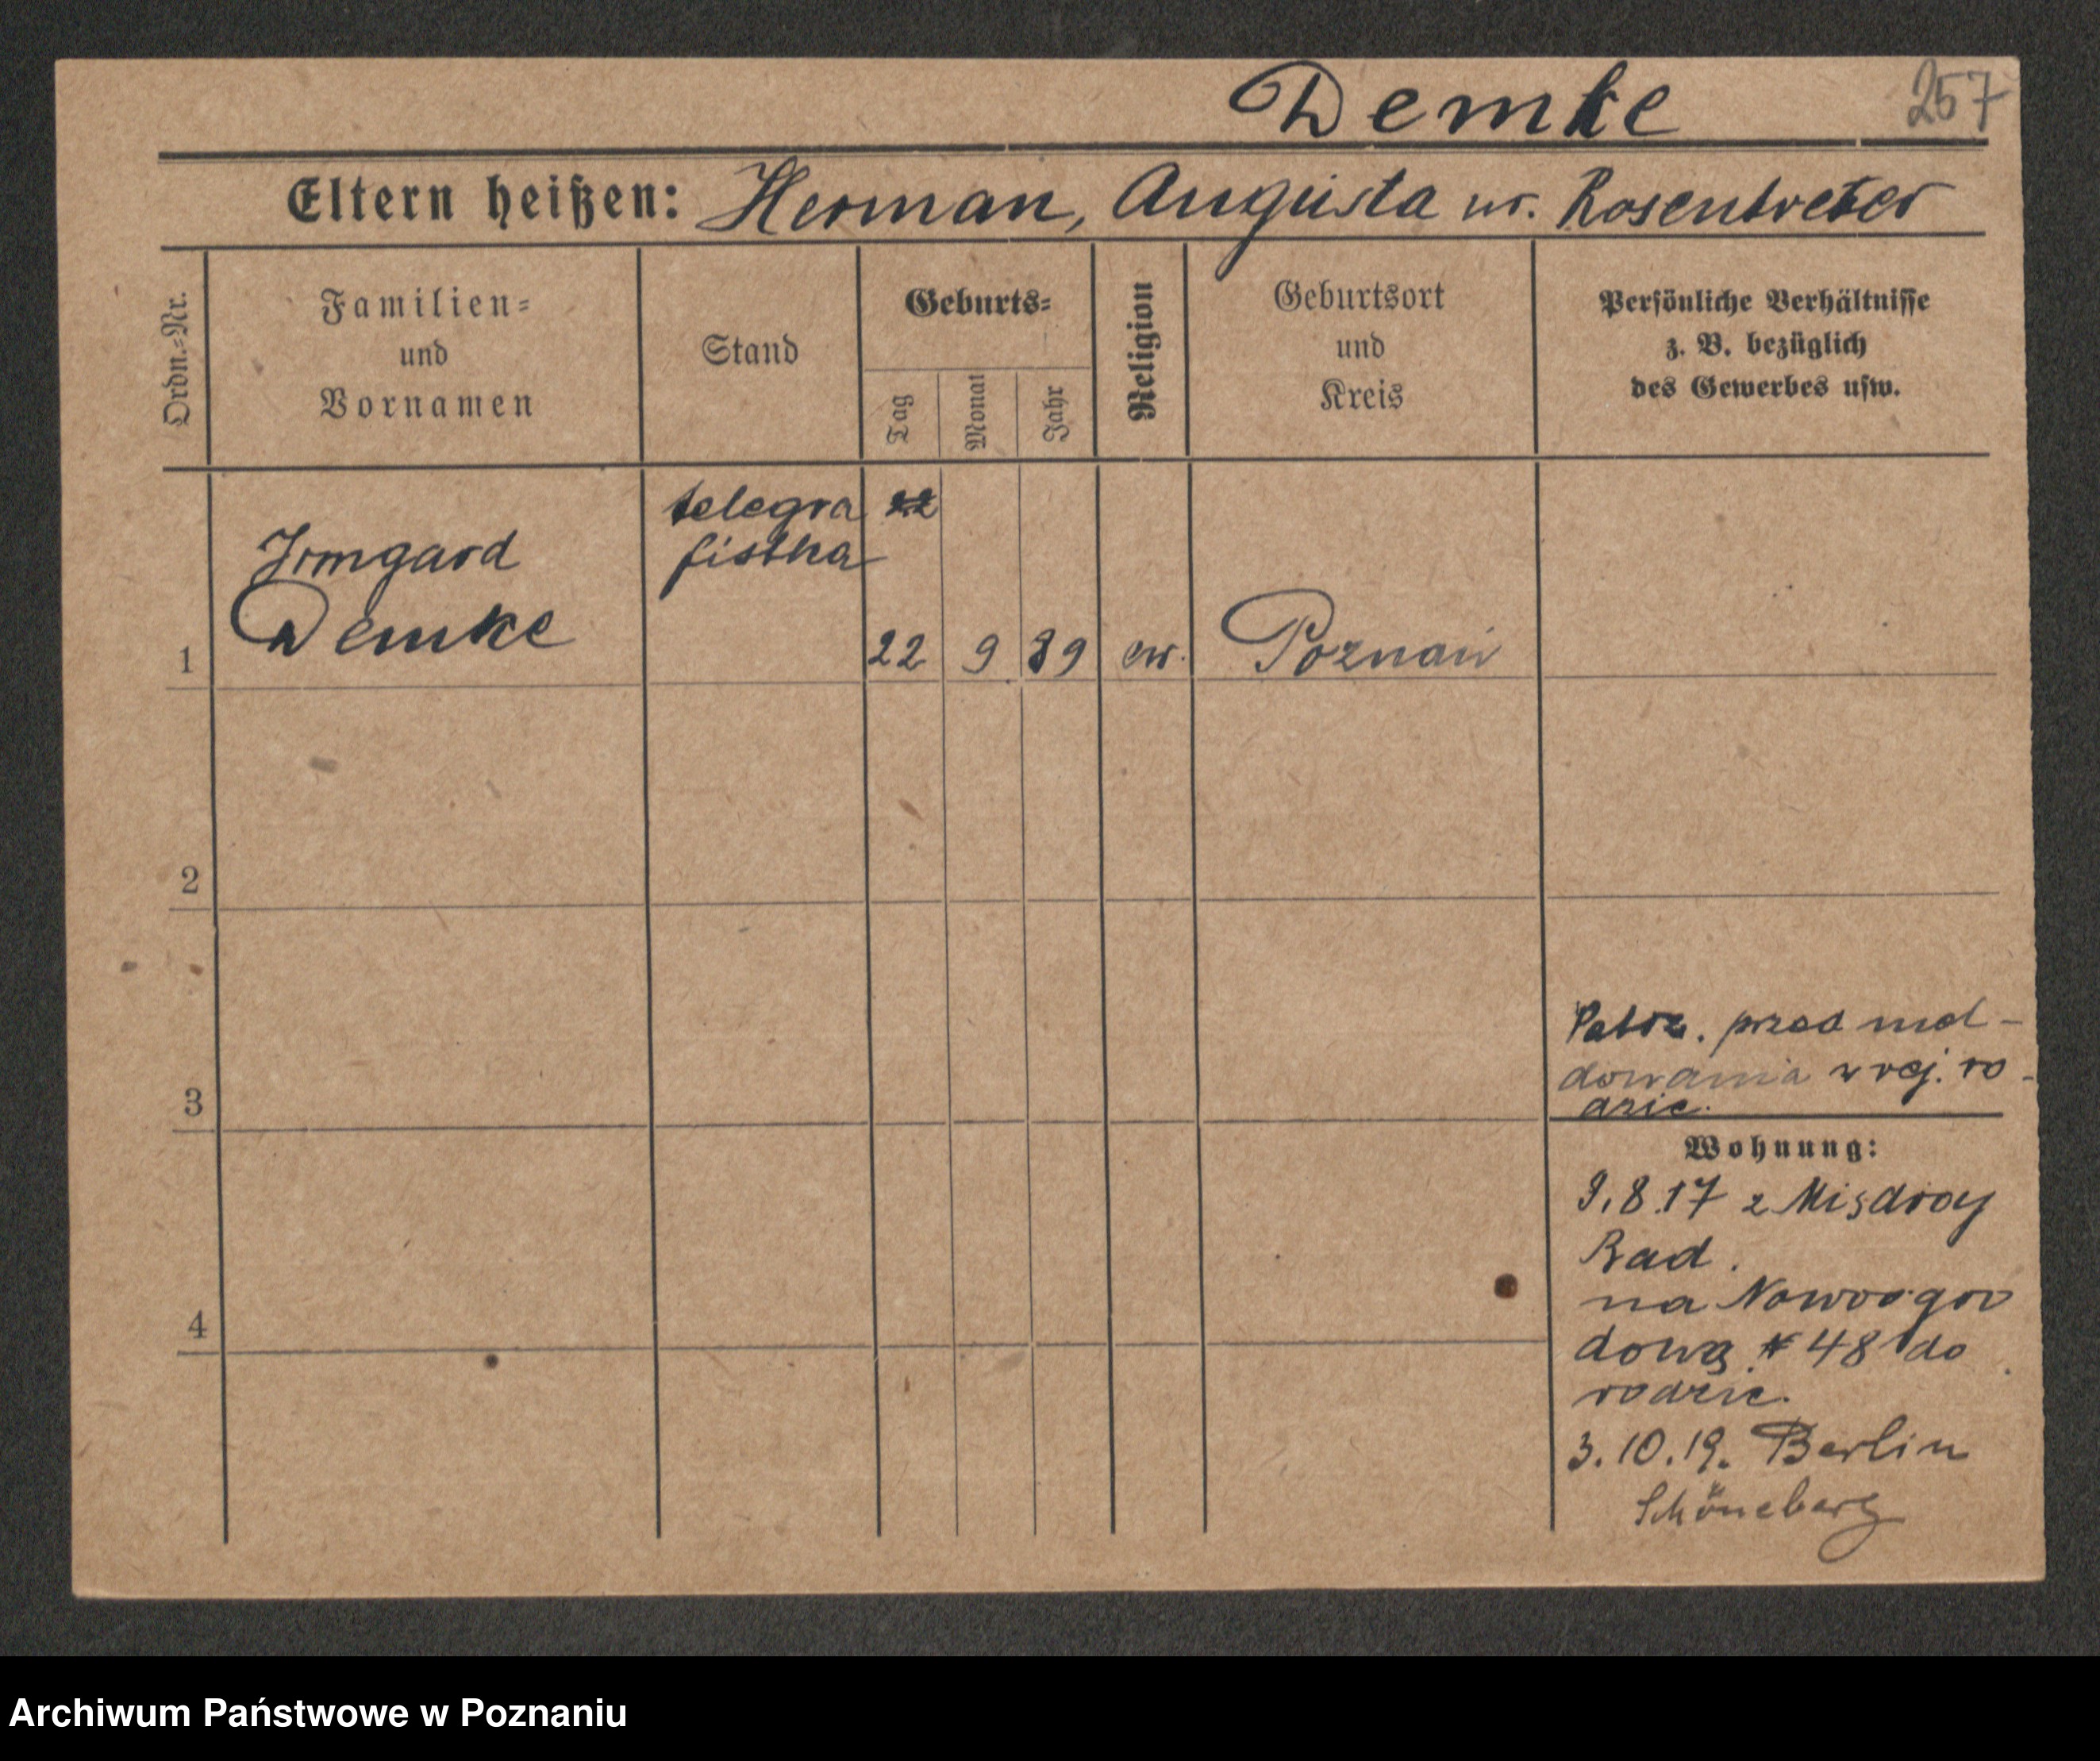 Demke
257
Eltern heißen: Herman, Augusta ur. Rosentreter
Ordn.=Nr.
Familien=
und
Vornamen
Stand
Geburts=
Tag
Monat
Jahr
Religion
Geburtsort
und
Kreis
Persönliche Verhältnisse
z. B. bezüglich
des Gewerbes usw.
1
Irmgard
Demke
telegra
fistka
22
22 9 89 ew. Poznań
2
3
Patrz. przed mel-
dowania w rej. ro-
dzic.
Wohnung:
9.8.17 z Misdroy
Bad.
na
48 do
rodzic.
3.10.19. Berlin
Schöneberg
4
Archiwum Państwowe w Poznaniu